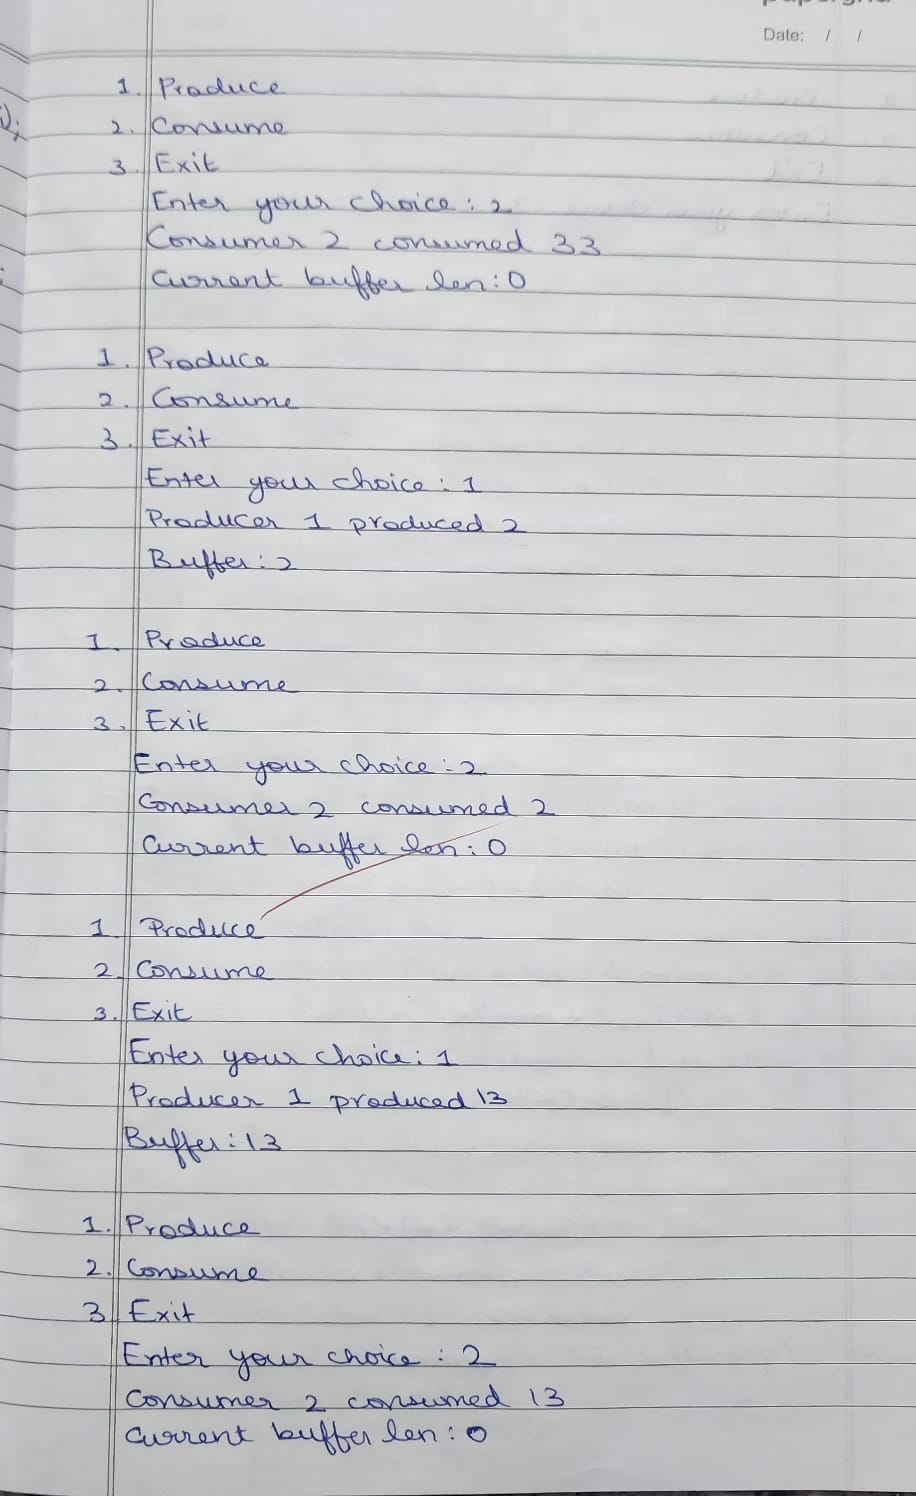 Date: / /
1. Produce
2. Consume
3. Exit
Enter your choice : 2
Consumer 2 consumed 33
Current buffer len : 0
1. Produce
2. Consume
3. Exit
Enter your choice : 1
Producer 1 produced 2
Buffer : 2
1. Produce
2. Consume
3. Exit
Enter your choice : 2
Consumer 2 consumed 2
Current buffer len : 0
1 Produce
2. Consume
3. Exit
Enter your choice : 1
Producer 1 produced 13
Buffer : 13
1. Produce
2. Consume
3 Exit
Enter your choice : 2
Consumer 2 consumed 13
Current buffer len : 0